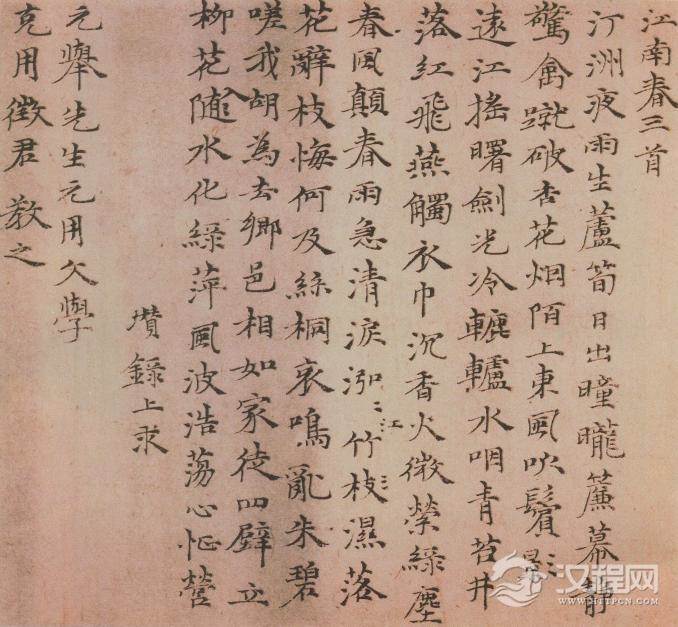 江南春三首
汀洲夜雨生蘆筍日出曈曨簾幕靜
驚禽蹴破杏花烟陌上東風吹鬢影
遠江搖曙劍光冷轆轤水咽青苔井
落紅飛燕觸衣巾沉香火微縈綠塵
春風顛春雨急清淚泓〻江竹枝濕落
花辭枝悔何及絲桐哀鳴亂朱碧
嗟我胡為去鄉邑相如家徒四壁立
柳花隨水化綠萍風波浩蕩心怔營
瓚錄上求
元舉先生元用文學
克用徵君 教之
汉程网
WWW.HTTPCN.COM